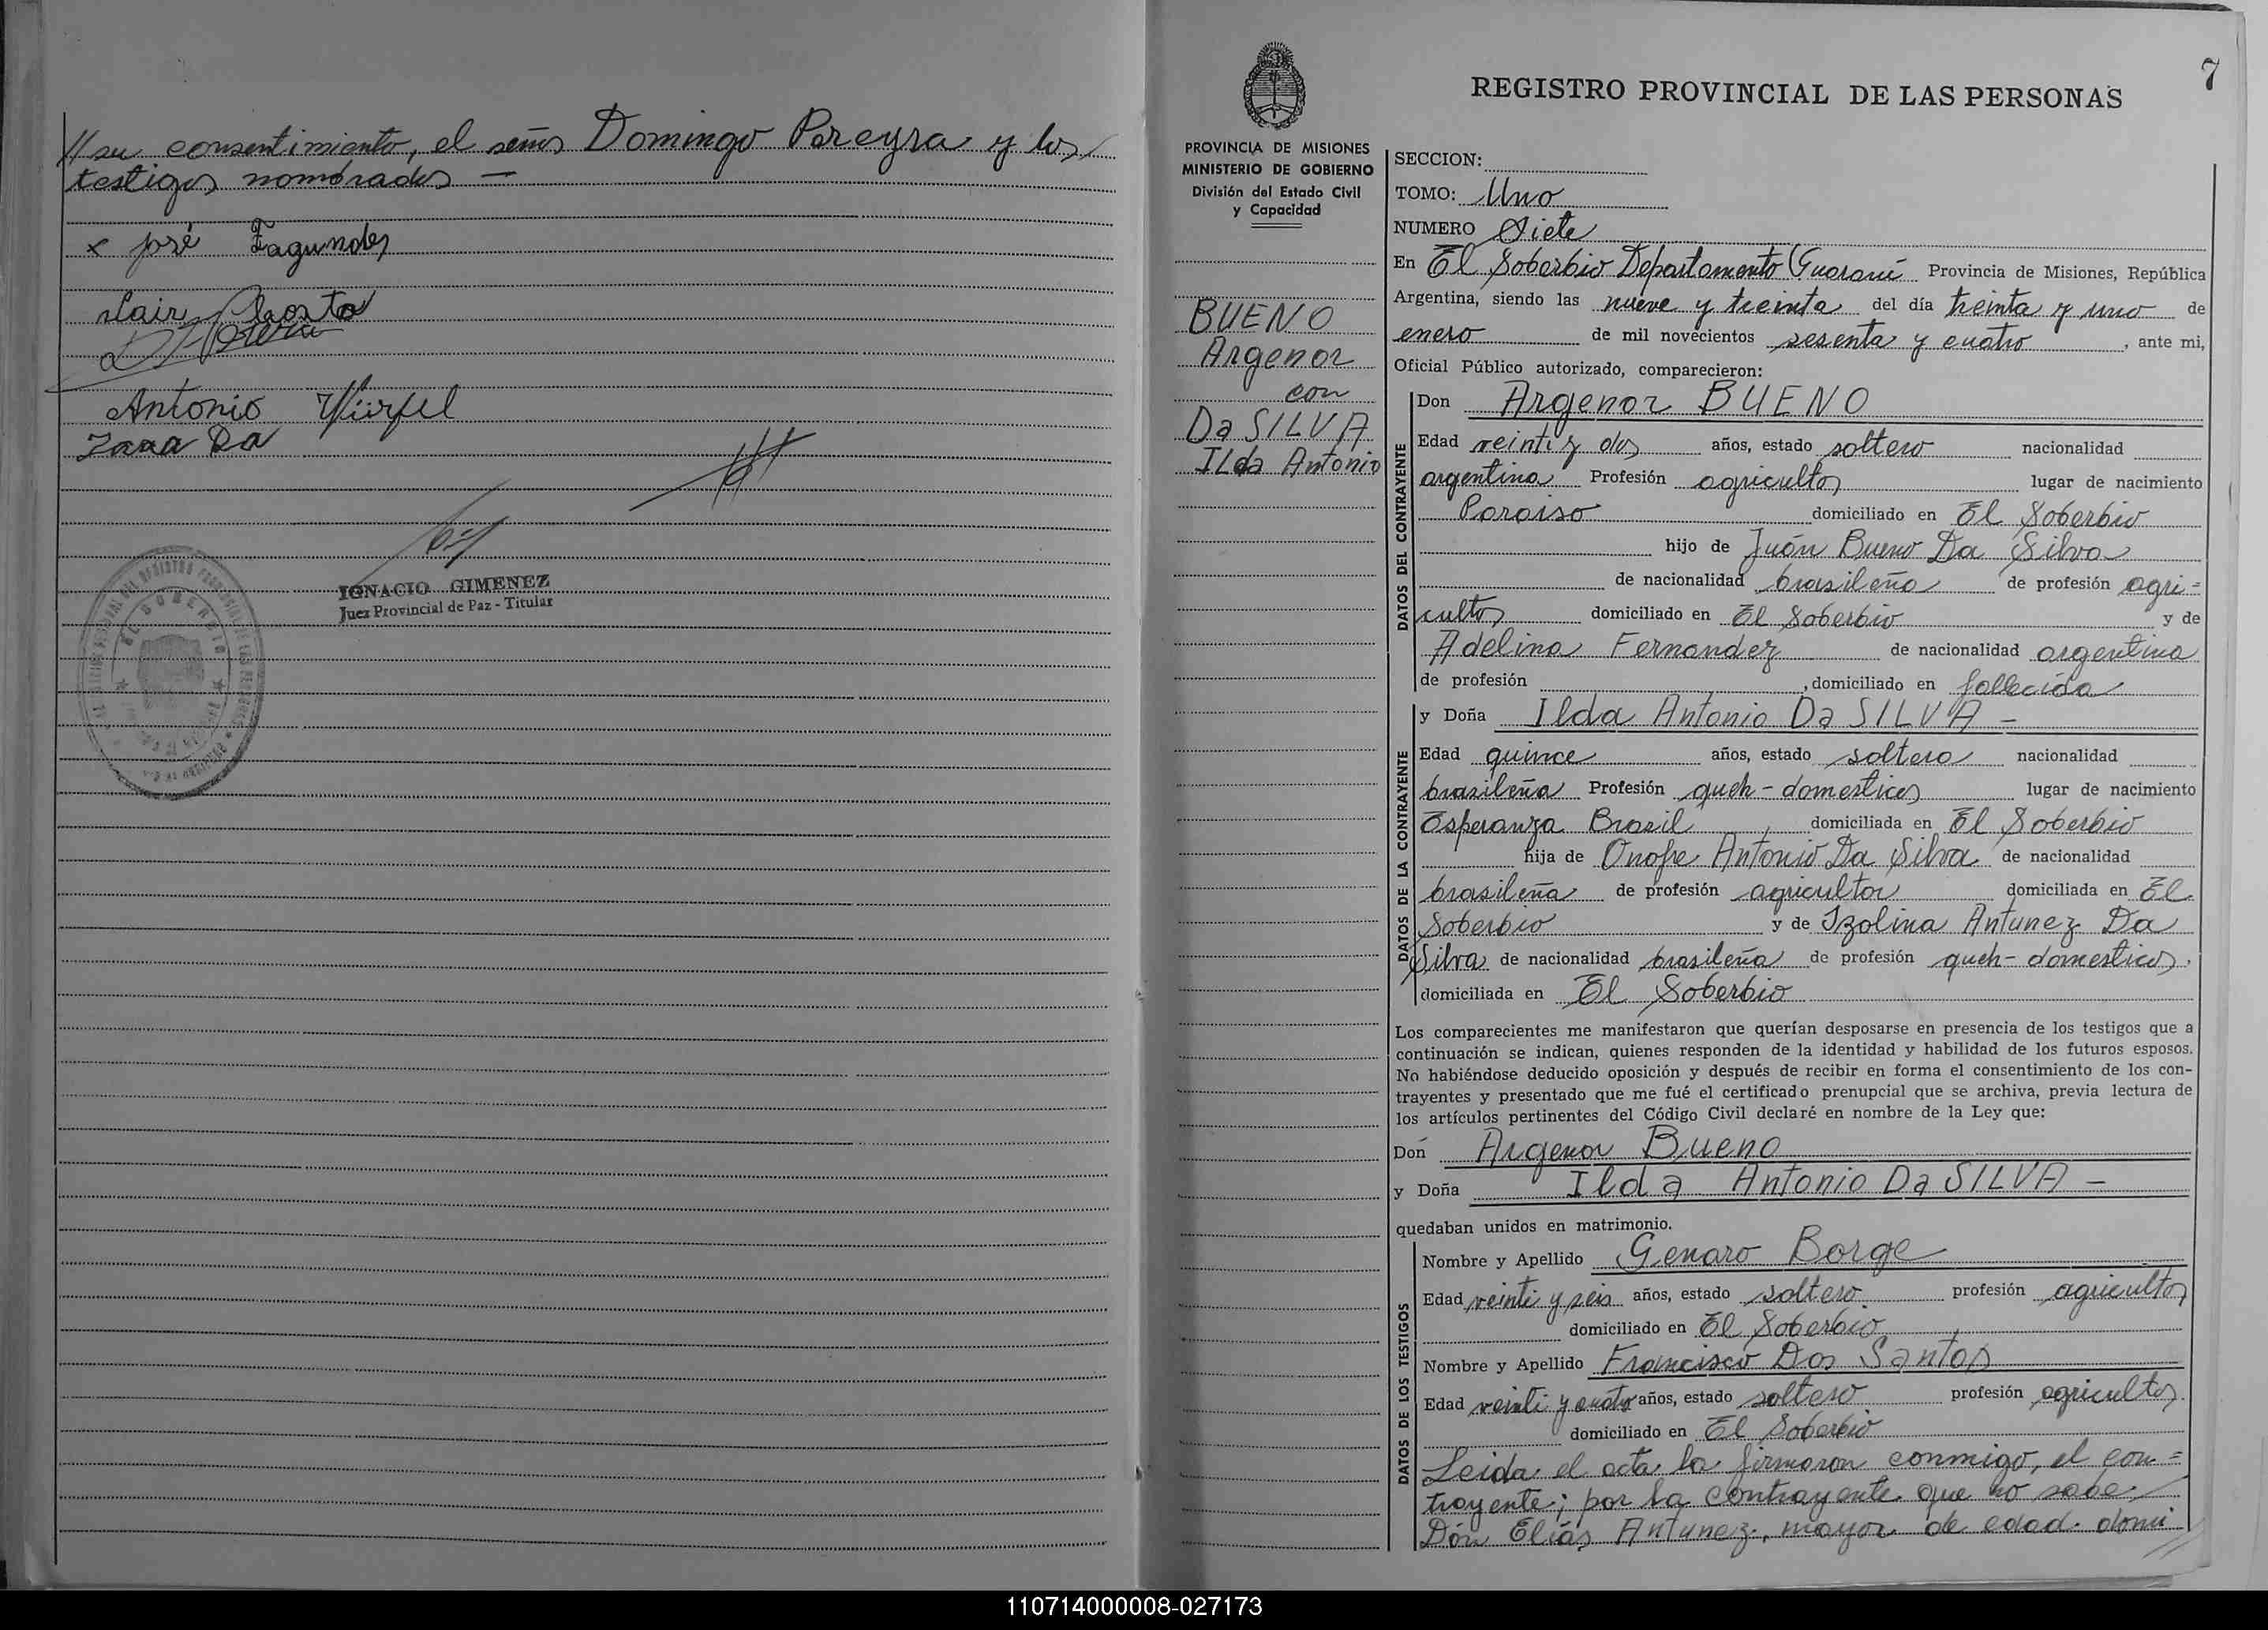 // su consentimiento, el señor Domingo Pereyra y los
testigos nombrados —
x José Fagundes
Antonio Würfel
IGNACIO GIMENEZ
Juez Provincial de Paz - Titular
EL SOBERBIO
7
REGISTRO PROVINCIAL DE LAS PERSONAS
PROVINCIA DE MISIONES
MINISTERIO DE GOBIERNO
División del Estado Civil
y Capacidad
BUENO
Argenor
con
Da SILVA
ILda Antonio
SECCION:
TOMO: Uno
NUMERO Siete
En El Soberbio Departamento Guaraní Provincia de Misiones, República
Argentina, siendo las nueve y treinta del día treinta y uno de
enero de mil novecientos sesenta y cuatro, ante mi,
Oficial Público autorizado, comparecieron:
DATOS DEL CONTRAYENTE
Don Argenor BUENO
Edad veinti y dos años, estado soltero nacionalidad
argentina Profesión agricultor lugar de nacimiento
Paraiso domiciliado en El Soberbio
hijo de Juán Bueno Da Silva
de nacionalidad brasileña de profesión agri=
cultor domiciliado en El Soberbio y de
Adelina Fernandez de nacionalidad argentina
de profesión , domiciliado en fallecida
DATOS DE LA CONTRAYENTE
y Doña Ilda Antonio Da SILVA —
Edad quince años, estado soltera nacionalidad
brasileña Profesión queh-domesticos lugar de nacimiento
Esperanza Brazil domiciliada en El Soberbio
hija de Onofre Antonio Da Silva de nacionalidad
brasileña de profesión agricultor domiciliada en El
Soberbio y de Izolina Antunez Da
Silva de nacionalidad brasileña de profesión queh-domesticos.
domiciliada en El Soberbio
Los comparecientes me manifestaron que querían desposarse en presencia de los testigos que a
continuación se indican, quienes responden de la identidad y habilidad de los futuros esposos.
No habiéndose deducido oposición y después de recibir en forma el consentimiento de los con-
trayentes y presentado que me fué el certificado prenupcial que se archiva, previa lectura de
los artículos pertinentes del Código Civil declaré en nombre de la Ley que:
Don Argenor Bueno
y Doña Ilda Antonio Da SILVA —
quedaban unidos en matrimonio.
DATOS DE LOS TESTIGOS
Nombre y Apellido Genaro Borge
Edad veinti y seis años, estado soltero profesión agricultor
domiciliado en El Soberbio
Nombre y Apellido Francisco Dos Santos
Edad veinti y cuatro años, estado soltero profesión agricultor
domiciliado en El Soberbio
Leida el acta la firmaron conmigo, el con=
trayente; por la contrayente que no sabe
Dón Eliás Antunez, mayor de edad domi //
110714000008-027173